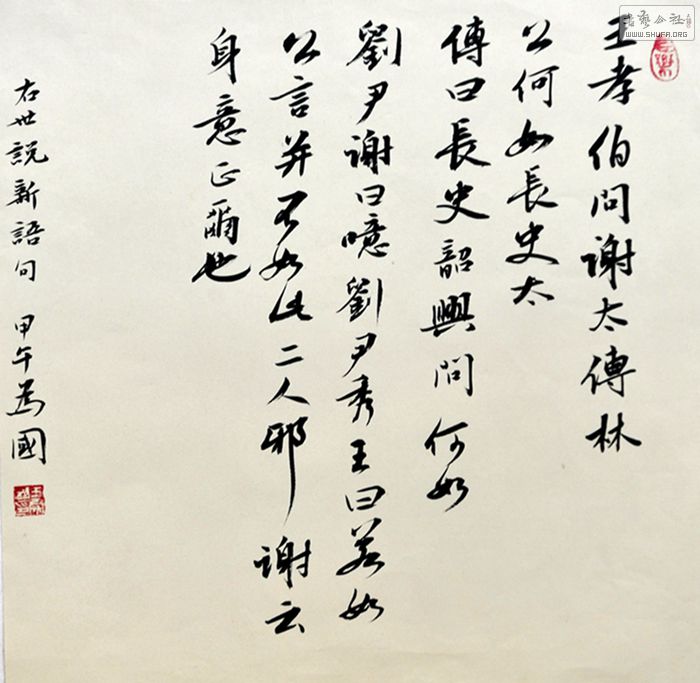 王孝伯問謝太傅林
公何如長史太
傅曰長史韶興問何如
劉尹謝曰噫劉尹秀王曰若如
公言并不如此二人邪謝云
身意正爾也
右世說新語句 甲午為國
書藝公社
WWW.SHUFA.ORG